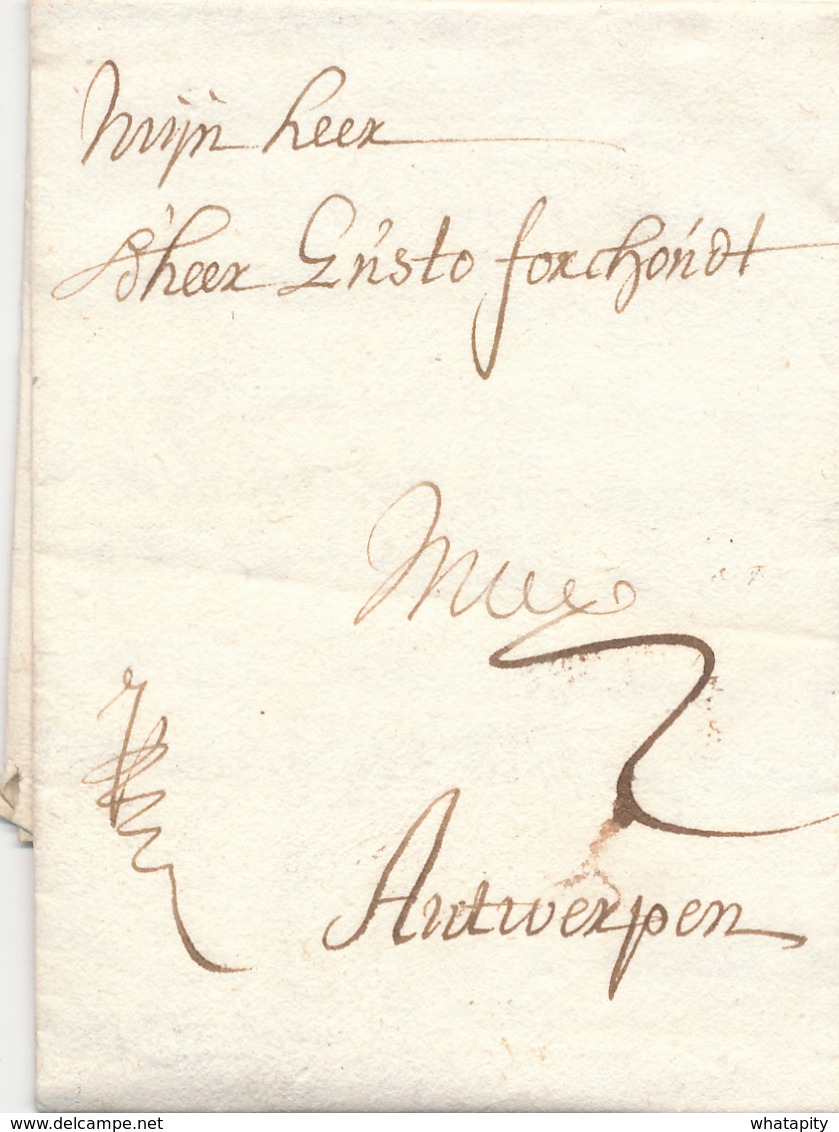 Mijn heer
d'heer Gůsto forchońdt
2
Antwerpen
www.delcampe.net
whatapity